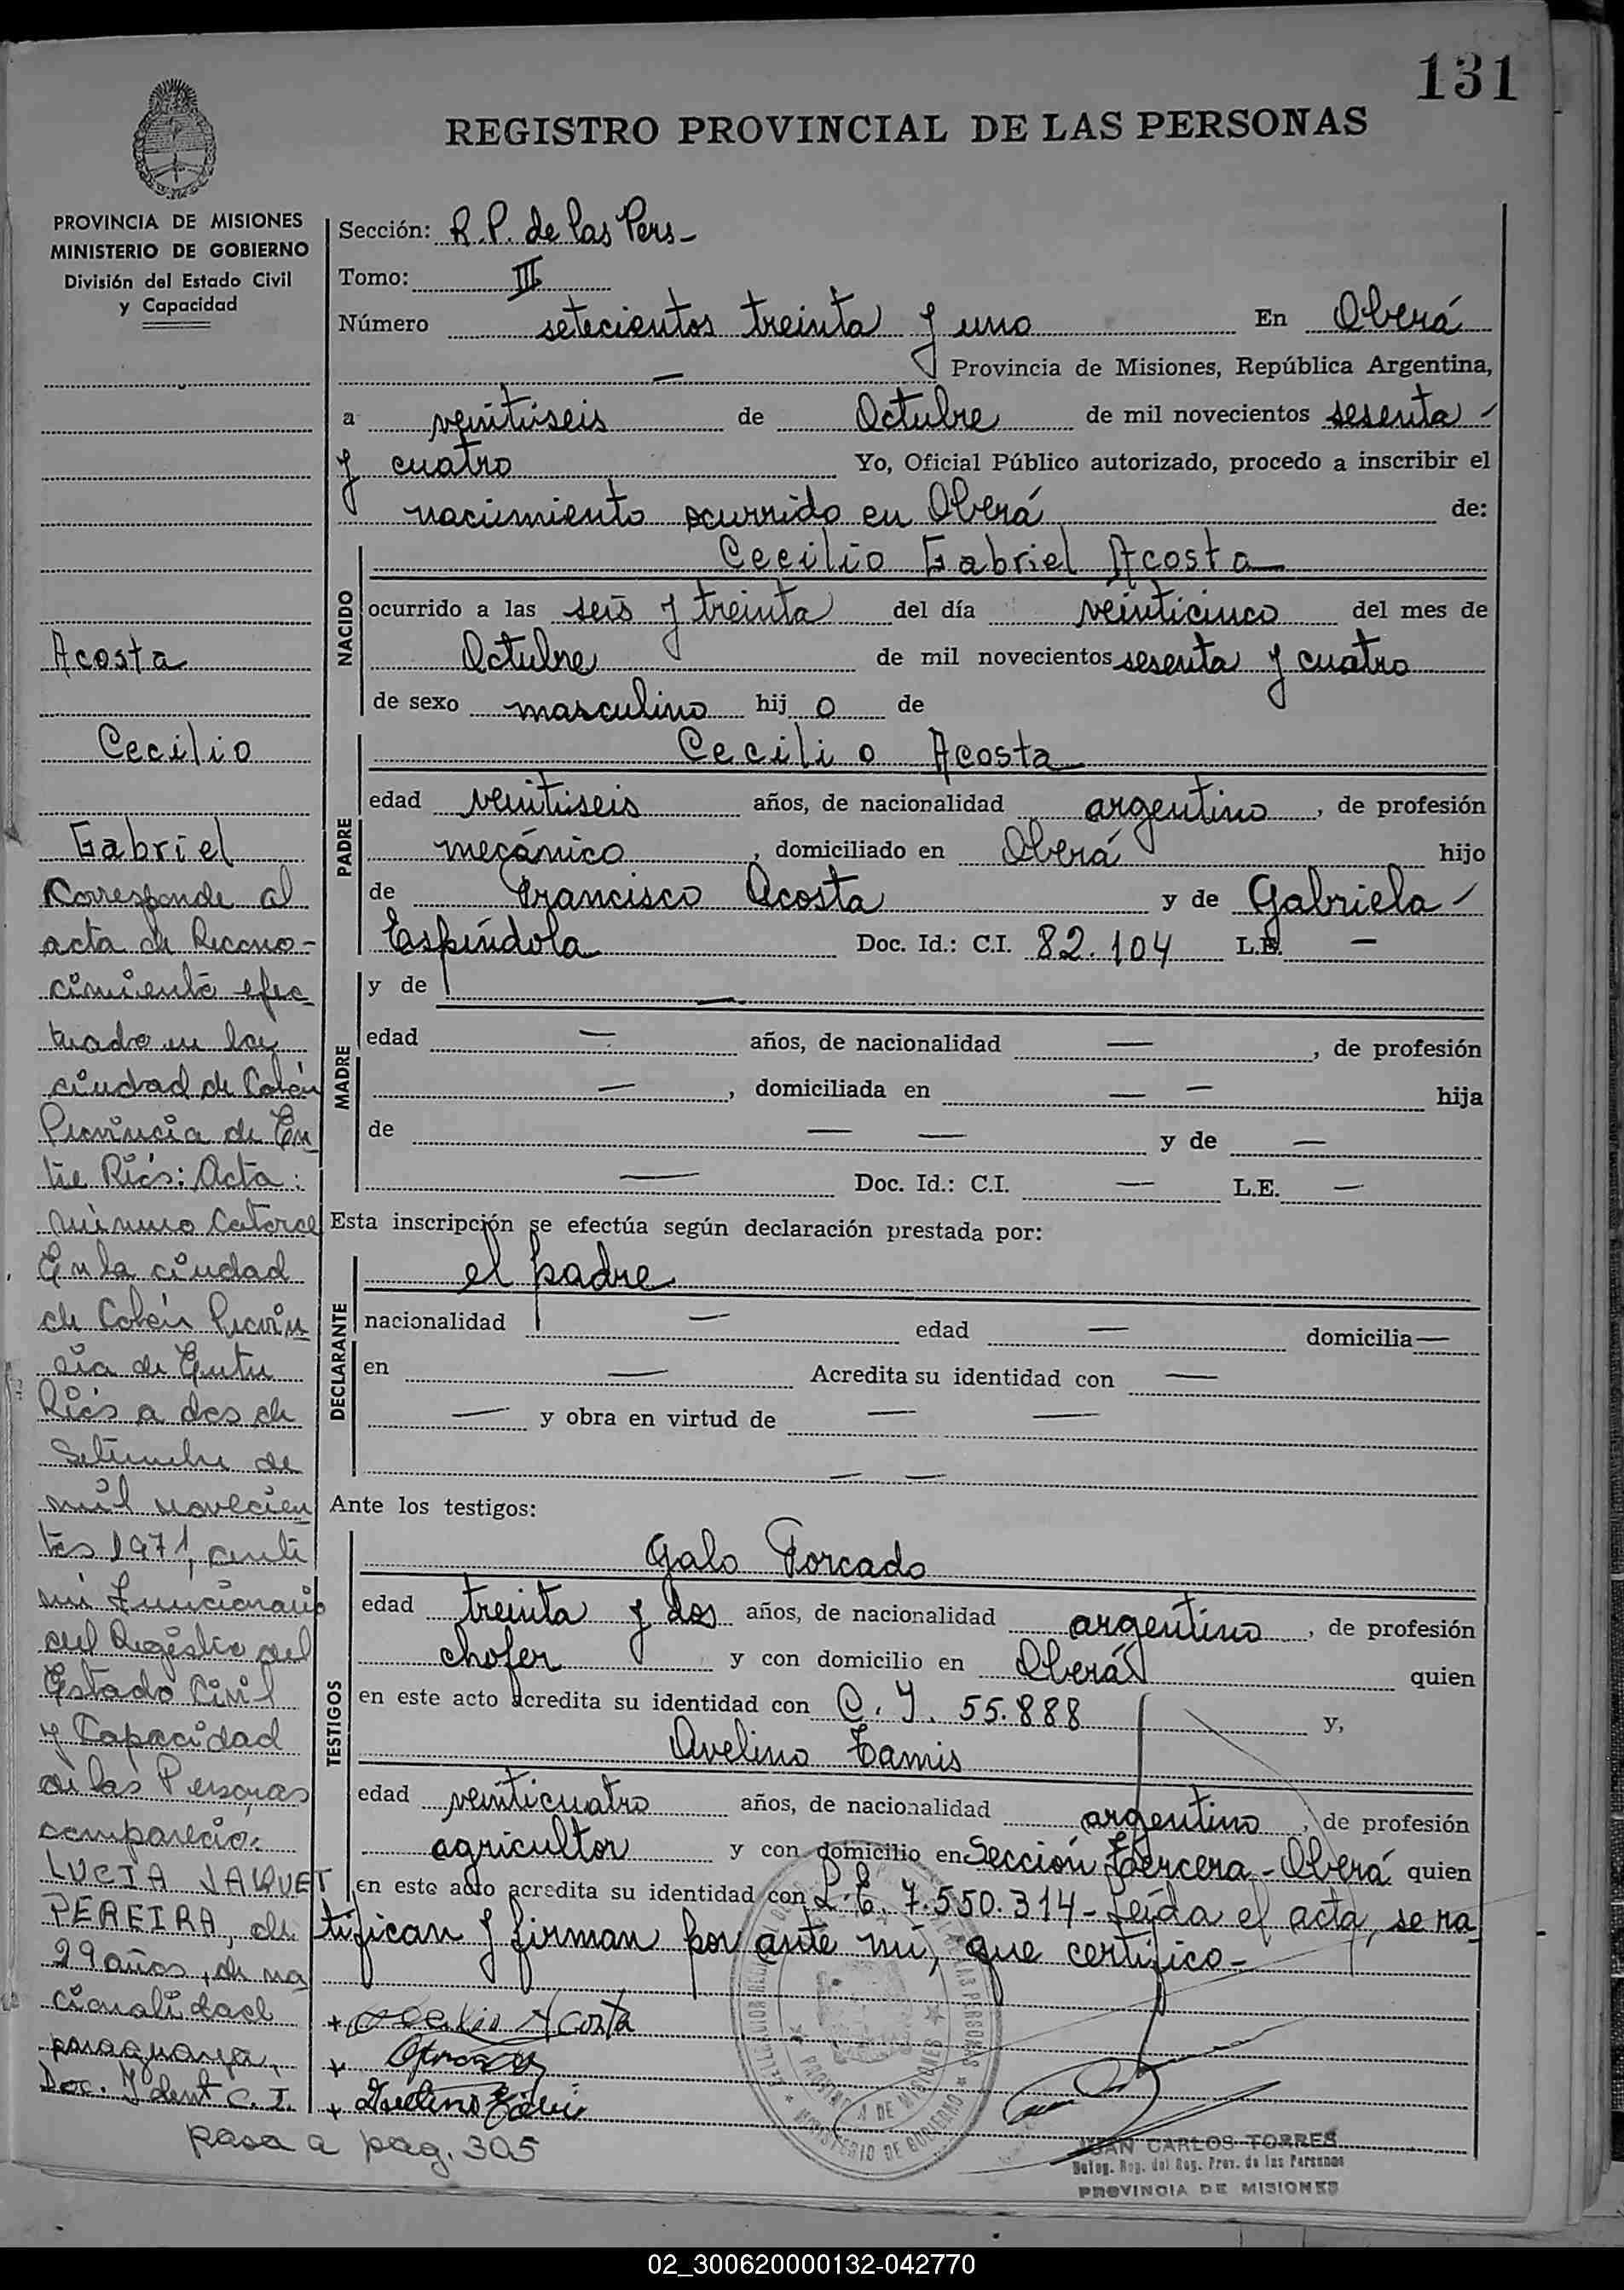 131
REGISTRO PROVINCIAL DE LAS PERSONAS
PROVINCIA DE MISIONES
MINISTERIO DE GOBIERNO
División del Estado Civil
y Capacidad
Acosta
Cecilio
Gabriel
Corresponde al
acta de Recono-
cimiento efec
tuado en la
ciudad de Colón
Provincia de En
tre Ríos: Acta:
número Catorce
En la ciudad
de Colón Provin
cia de Entre
Ríos a dos de
Setiembre de
mil novecien
tos 1971, ante
mi Funcionario
del Registro del
Estado Civil
y Capacidad
de las Personas
compareció:
LUCIA JAQUET
PEREIRA, de
29 años, de na
cionalidad
paraguaya,
Doc. Ident C. I.
pasa a pag. 305
Sección: R.P. de las Pers-
Tomo: III
Número setecientos treinta y uno En Oberá
— Provincia de Misiones, República Argentina,
a veintiseis de Octubre de mil novecientos sesenta -
y cuatro Yo, Oficial Público autorizado, procedo a inscribir el
nacimiento ocurrido en Oberá de:
NACIDO
Cecilio Gabriel Acosta
ocurrido a las seis y treinta del día veinticinco del mes de
Octubre de mil novecientos sesenta y cuatro
de sexo masculino hij o de
PADRE
Cecilio Acosta
edad veintiseis años, de nacionalidad argentino, de profesión
mecánico, domiciliado en Oberá hijo
de Francisco Acosta y de Gabriela -
Espíndola Doc. Id.: C.I. 82.104 L.E. —
MADRE
y de —
edad — años, de nacionalidad —, de profesión
—, domiciliada en — — hija
de — — y de —
— Doc. Id.: C.I. — L.E. —
Esta inscripción se efectúa según declaración prestada por:
DECLARANTE
el padre
nacionalidad — edad — domicilia —
en — Acredita su identidad con —
— y obra en virtud de — —
— —
Ante los testigos:
TESTIGOS
Galo Porcado
edad treinta y dos años, de nacionalidad argentino, de profesión
chofer y con domicilio en Oberá quien
en este acto acredita su identidad con C. I. 55.888 y,
Avelino Tamis
edad veinticuatro años, de nacionalidad argentino, de profesión
agricultor y con domicilio en Sección Tercera - Oberá quien
en este acto acredita su identidad con L.E. 7.550.314 - Leída el acta, se ra
tifican y firman por ante mí, que certifico -
+ Cecilio Acosta
PROVINCIA DE MISIONES
MINISTERIO DE GOBIERNO
JUAN CARLOS TORRES
Deleg. Reg. del Reg. Prov. de las Personas
PROVINCIA DE MISIONES
02_300620000132-042770